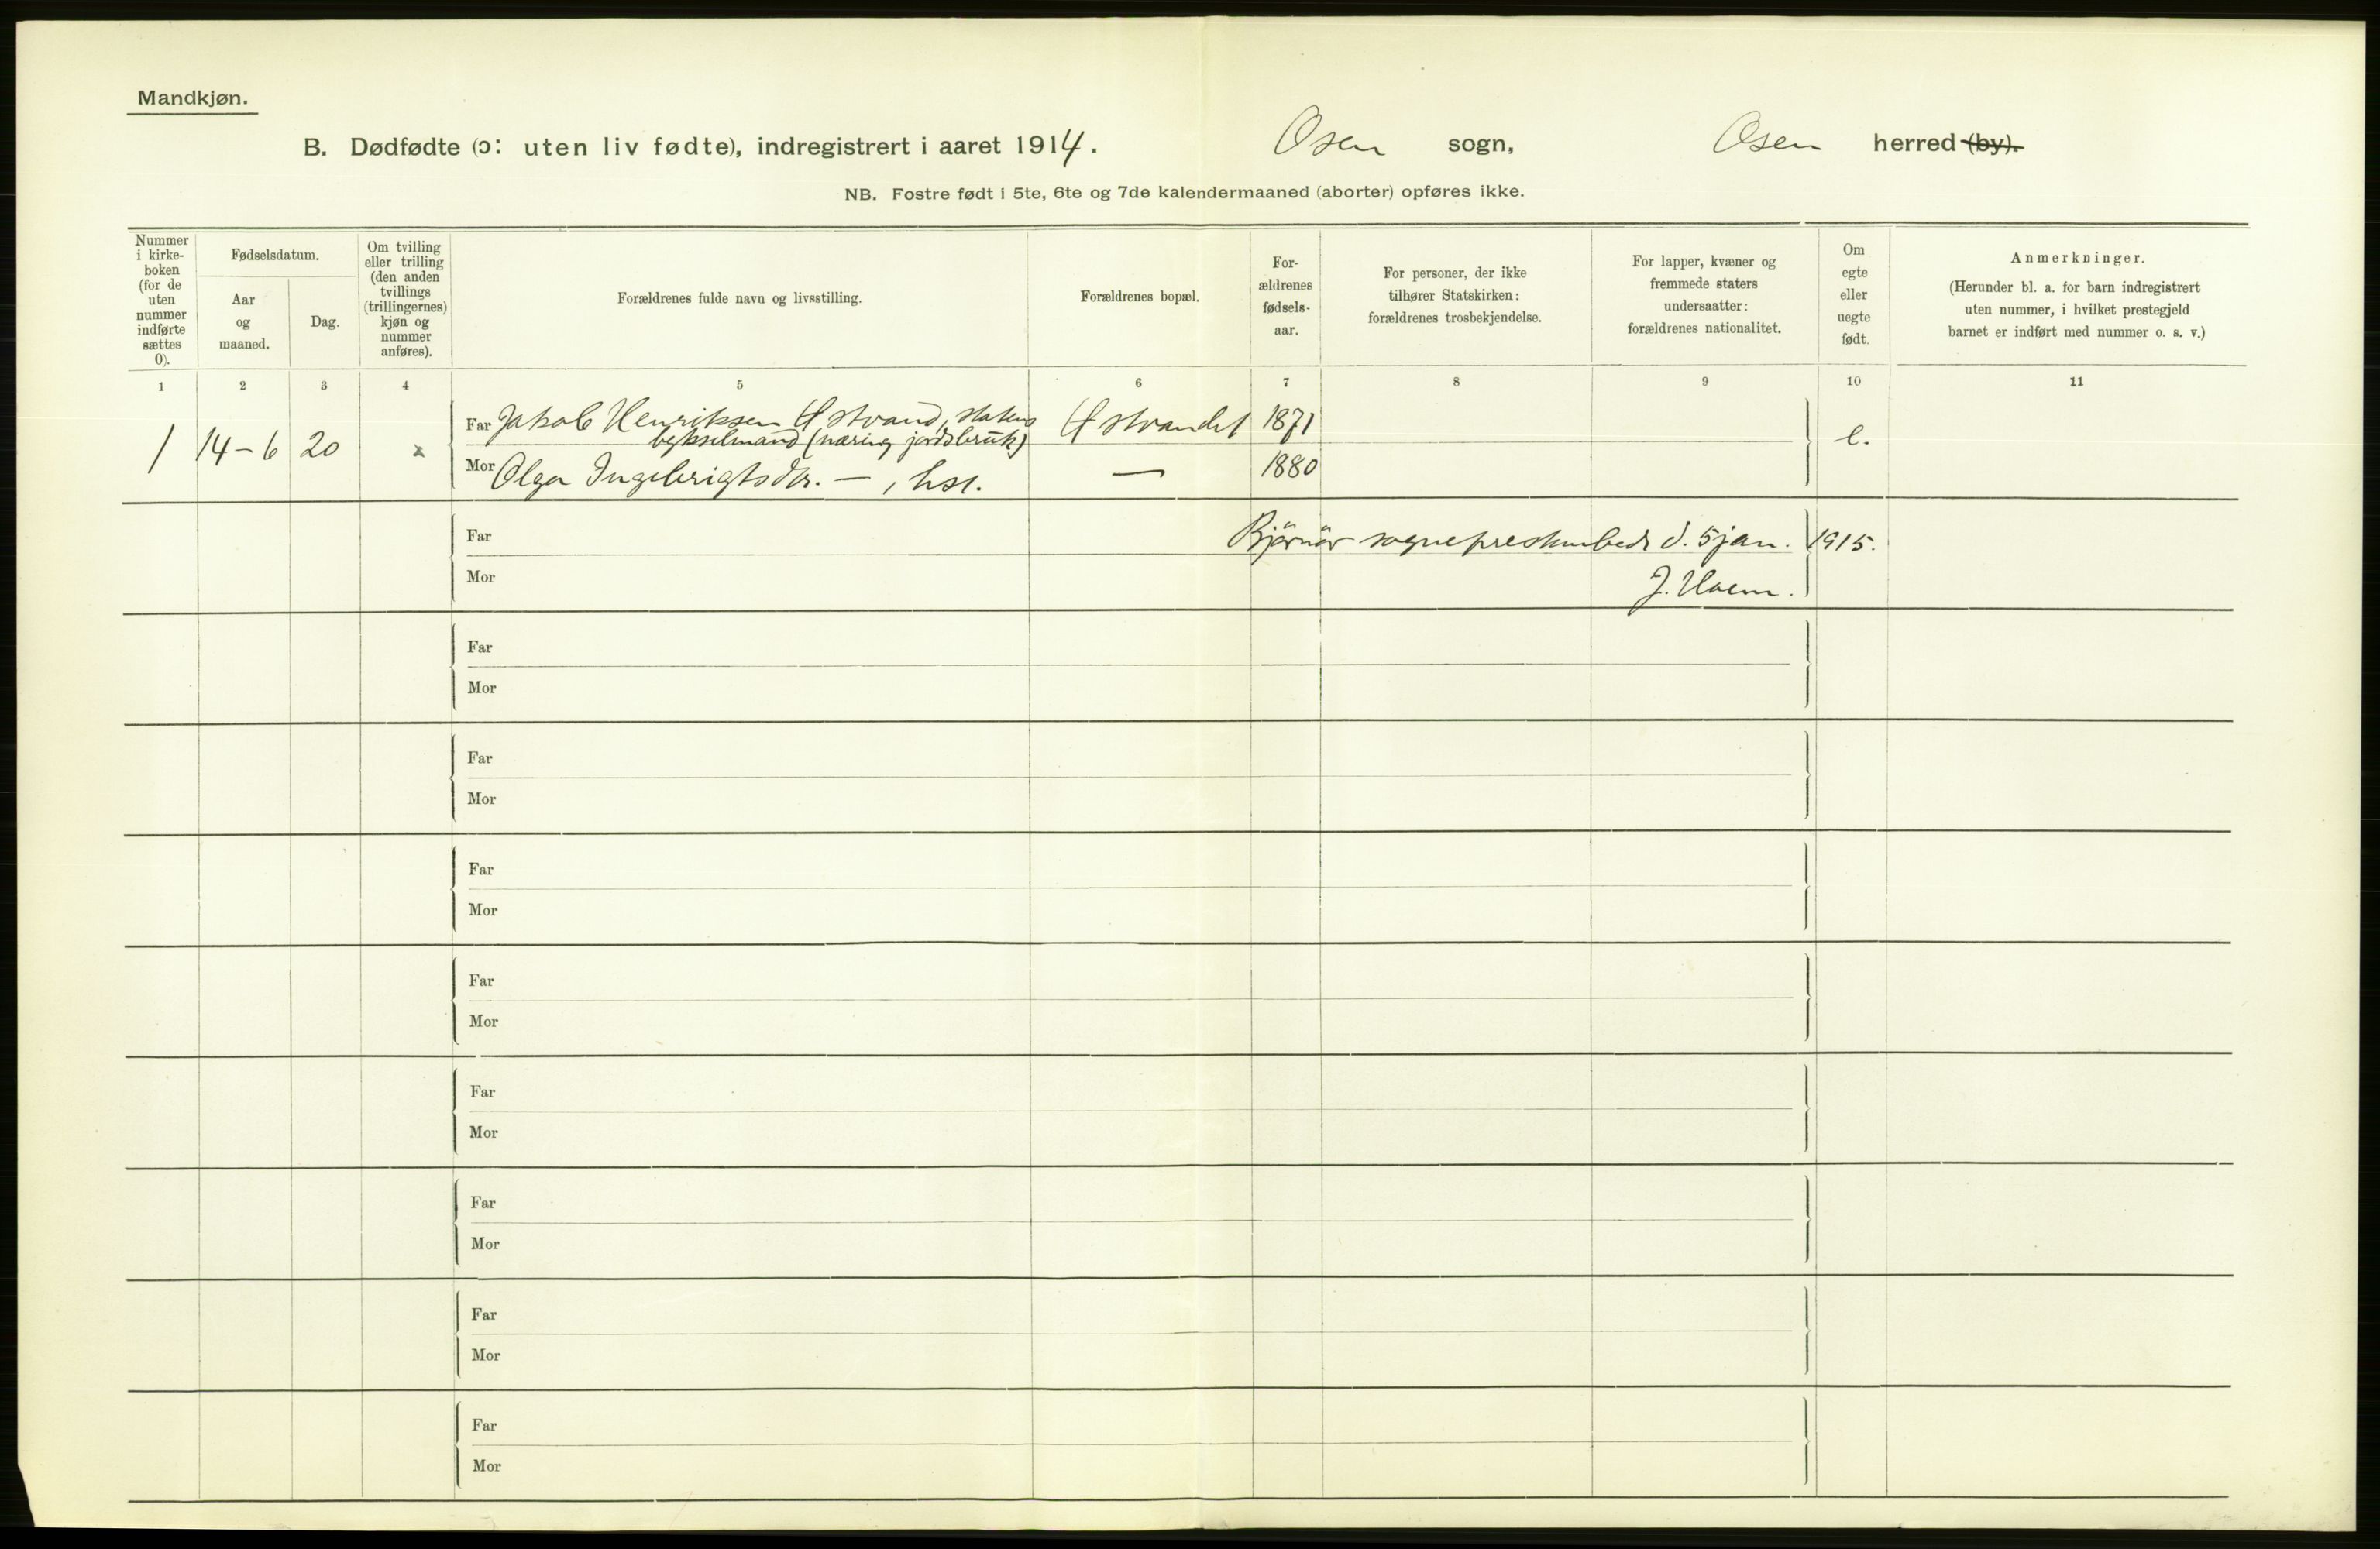 Mandkjøn.
B. Dødfødte (ɔ: uten liv fødte), indregistrert i aaret 1914. Osen sogn, Osen herred (by).
NB. Fostre født i 5te, 6te og 7de kalendermaaned (aborter) opføres ikke.
Nummer
i kirke-
boken
(for de
uten
nummer
indførte
sættes
0).
Fødselsdatum.
Aar
og
maaned.
Dag.
Om tvilling
eller trilling
(den anden
tvillings
(trillingernes)
kjøn og
nummer
anføres).
Forældrenes fulde navn og livsstilling.
Forældrenes bopæl.
For-
ældrenes
fødsels-
aar.
For personer, der ikke
tilhører Statskirken:
forældrenes trosbekjendelse.
For lapper, kvæner og
fremmede staters
undersaatter:
forældrenes nationalitet.
Om
egte
eller
uegte
født.
Anmerkninger.
(Herunder bl. a. for barn indregistrert
uten nummer, i hvilket prestegjeld
barnet er indført med nummer o. s. v.)
1 2 3 4 5 6 7 8 9 10 11
1 14-6 20 x
Far Jakob Henriksen strand, statens
bykselmand (næring jordsbruk)
1871
e.
Mor Olga Ingebrigtsdtr. — , hst. — 1880
Far
Bjørnør sogneprestembede d. 5 jan. 1915.
Mor
J. Hoem.
Far
Mor
Far
Mor
Far
Mor
Far
Mor
Far
Mor
Far
Mor
Far
Mor
Far
Mor